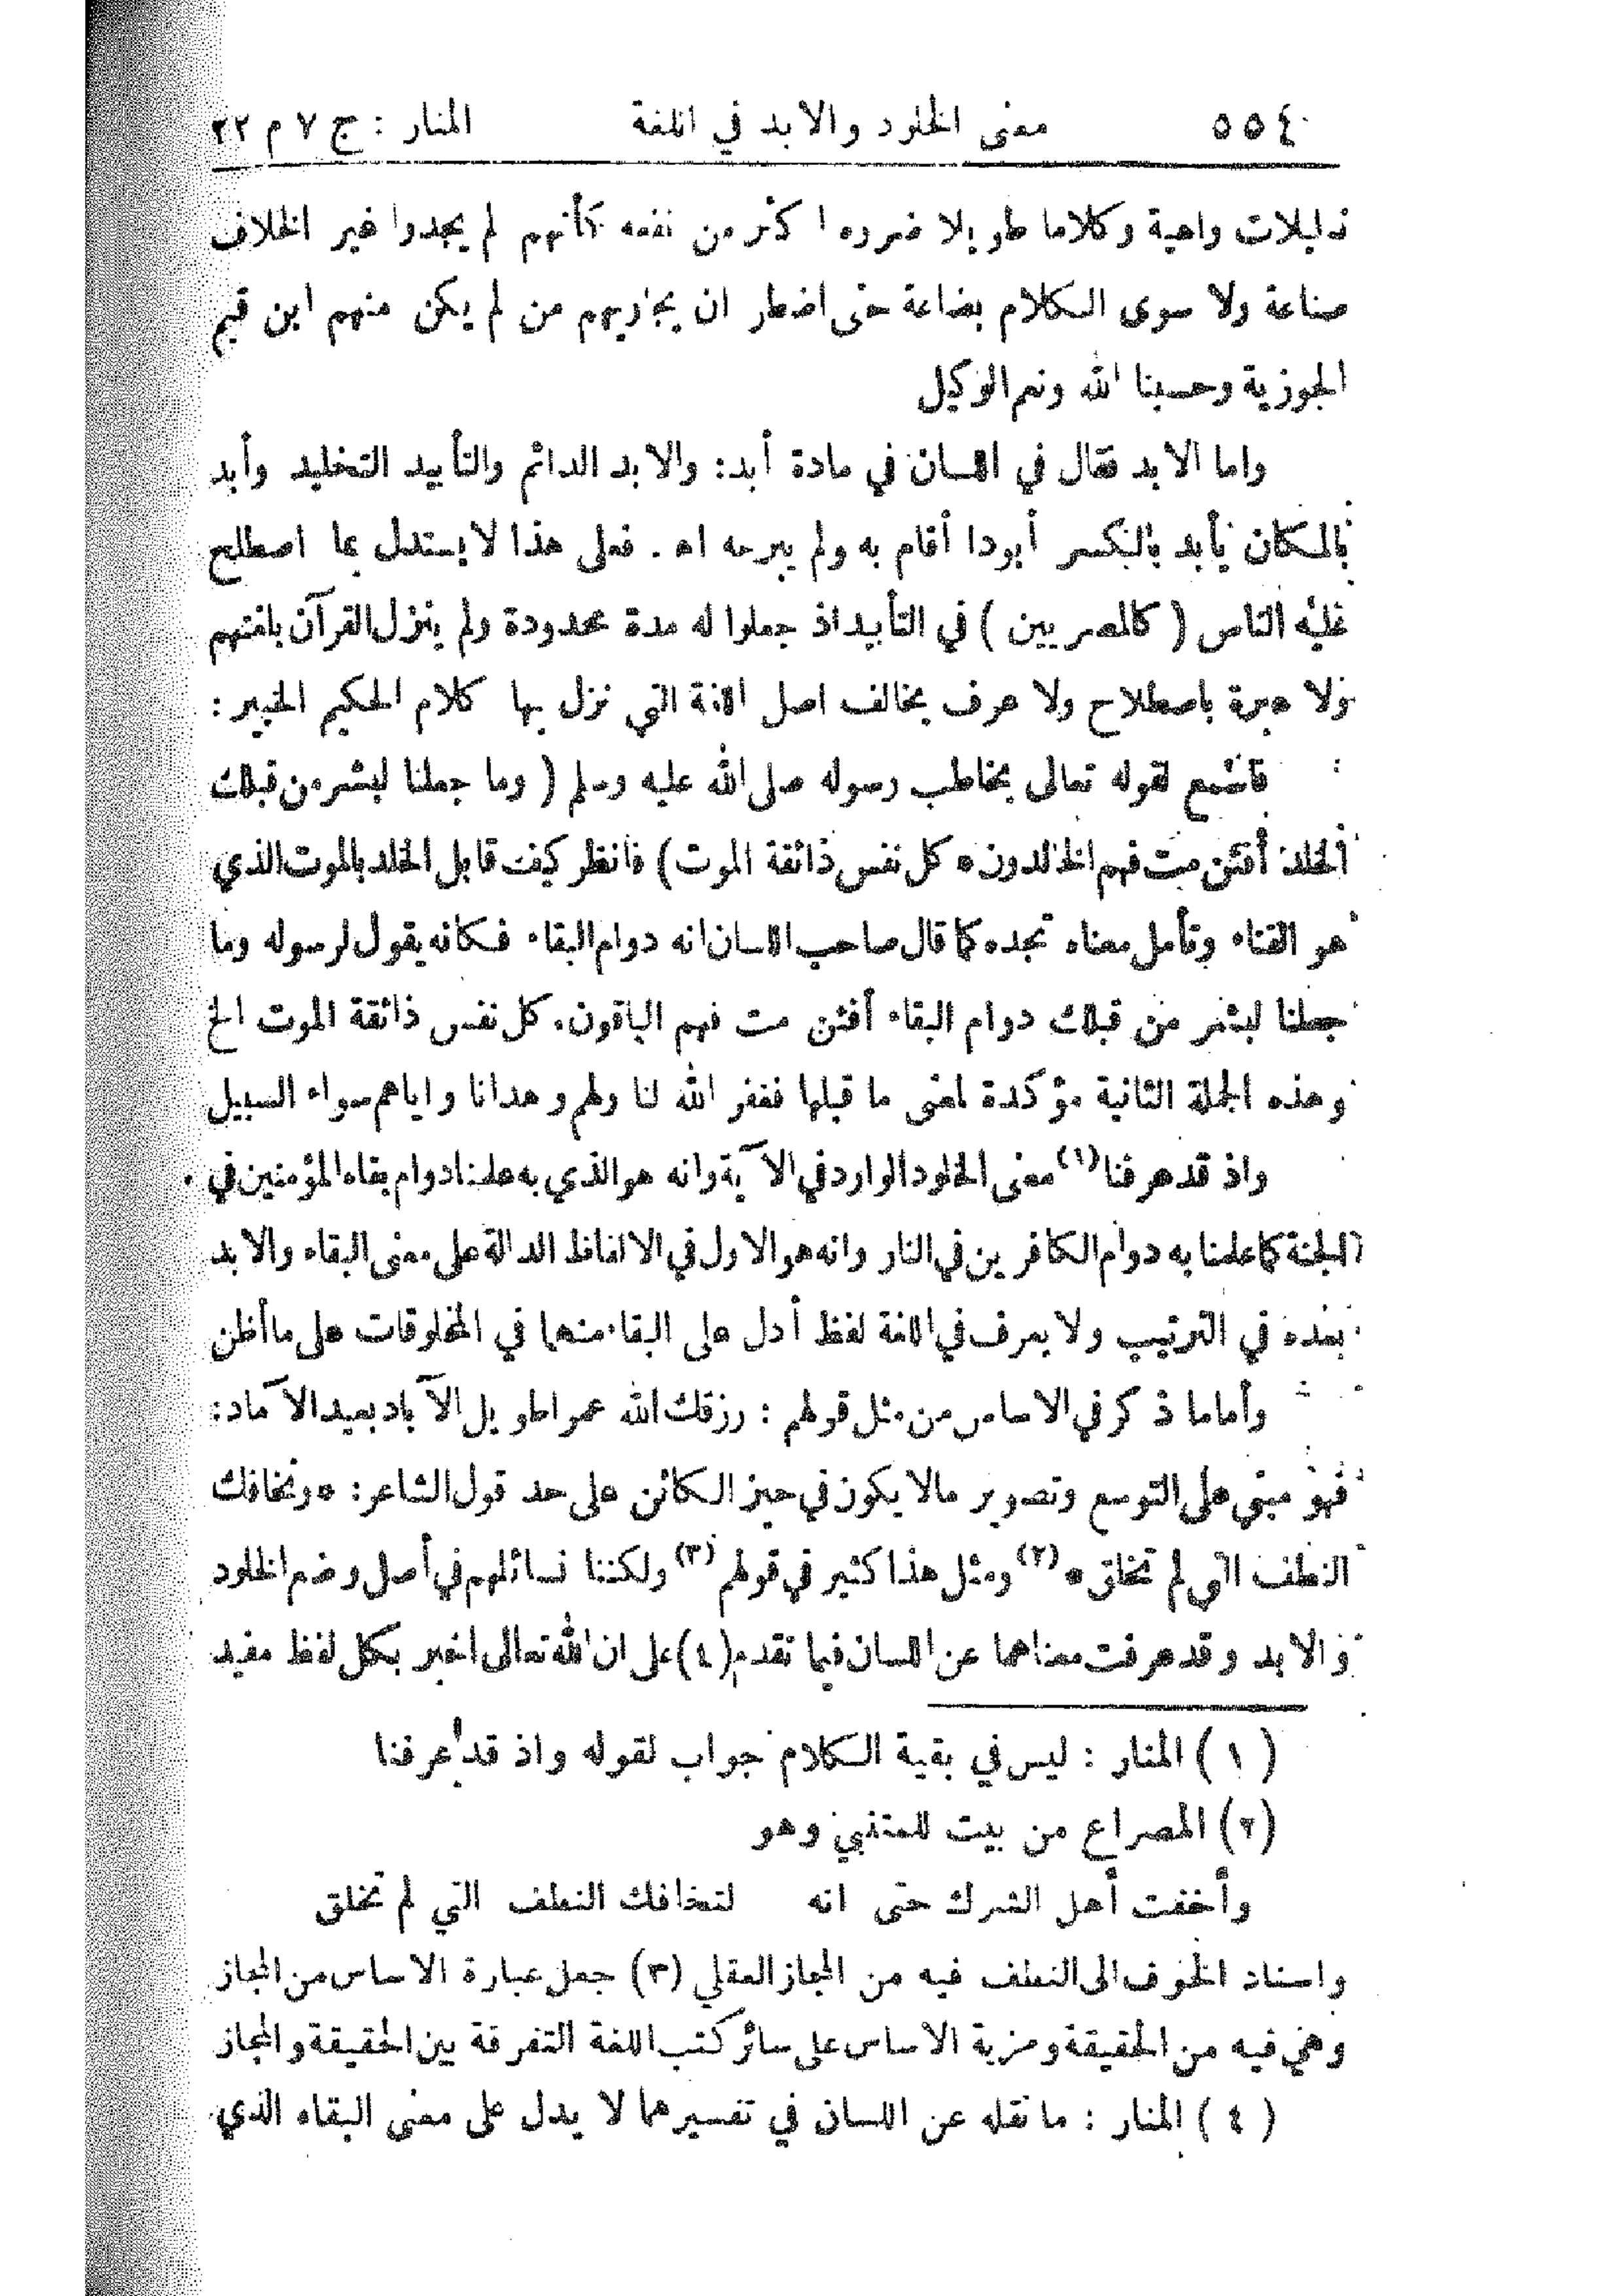 ٥٥٤ معنى الخلود والابد في اللغة المنار : ج ٧ م ٢٢
تدليلات واهية وكلاما طويلا ضرره اكثر من نفعه كأنهم لم يجدوا غير الخلاف
صناعة ولا سوى الكلام بضاعة حتى اضطر ان يجاريهم من لم يكن منهم ابن قيم
الجوزية وحسبنا الله ونعم الوكيل
واما الابد فقال في اللسان في مادة أبد: والابد الدائم والتأبيد التخليد وأبد
بالمكان يأبد بالكسر أبودا أقام به ولم يبرحه اه . فعلى هذا لا يستدل بما اصطلح
عليه الناس ( كالمصريين ) في التأبيد اذ جعلوا له مدة محدودة ولم ينزل القرآن بلغتهم
ولا عبرة باصطلاح ولا عرف يخالف اصل اللغة التي نزل بها كلام الحكيم الخبير :
فاسمع لقوله تعالى يخاطب رسوله صلى الله عليه وسلم ( وما جعلنا لبشر من قبلك
الخلد أفئن مت فهم الخالدون * كل نفس ذائقة الموت ) فانظر كيف قابل الخلد بالموت الذي
هو الفناء وتأمل معناه تجده كما قال صاحب اللسان انه دوام البقاء فكانه يقول لرسوله وما
جعلنا لبشر من قبلك دوام البقاء أفئن مت فهم الباقون. كل نفس ذائقة الموت الخ
وهذه الجملة الثانية مؤكدة لمعنى ما قبلها فغفر الله لنا ولهم وهدانا واياهم سواء السبيل
واذ قد عرفنا (١) معنى الخلود الوارد في الآية وانه هو الذي به علمنا دوام بقاء المؤمنين في
الجنة كما علمنا به دوام الكافرين في النار وانه هو الاول في الالفاظ الدالة على معنى البقاء والابد
بعده في الترتيب ولا يعرف في اللغة لفظ أدل على البقاء منهما في المخلوقات على ما أظن
وأما ما ذكر في الاساس من مثل قولهم : رزقك الله عمرا طويل الآباد بعيد الآماد :
فهو مبني على التوسع وتصوير ما لا يكون في حيز الكائن على حد قول الشاعر : * وتخافك
النطف التي لم تخلق * (٢) ومثل هذا كثير في قولهم (٣) ولكننا نسائلهم في أصل وضع الخلود
والابد وقد عرفت معناهما عن اللسان فيما تقدم (٤) على ان الله تعالى اخبر بكل لفظ مفيد
( ١ ) المنار : ليس في بقية الكلام جواب لقوله واذ قد عرفنا
(٢) المصراع من بيت للمتنبي وهو
وأخفت أهل الشرك حتى انه لتخافك النطف التي لم تخلق
واسناد الخوف الى النطف فيه من المجاز العقلي (٣) جعل عبارة الاساس من المجاز
وهي فيه من الحقيقة ومزية الاساس على سائر كتب اللغة التفرقة بين الحقيقة والمجاز
( ٤ ) المنار : ما نقله عن اللسان في تفسيرهما لا يدل على معنى البقاء الذي